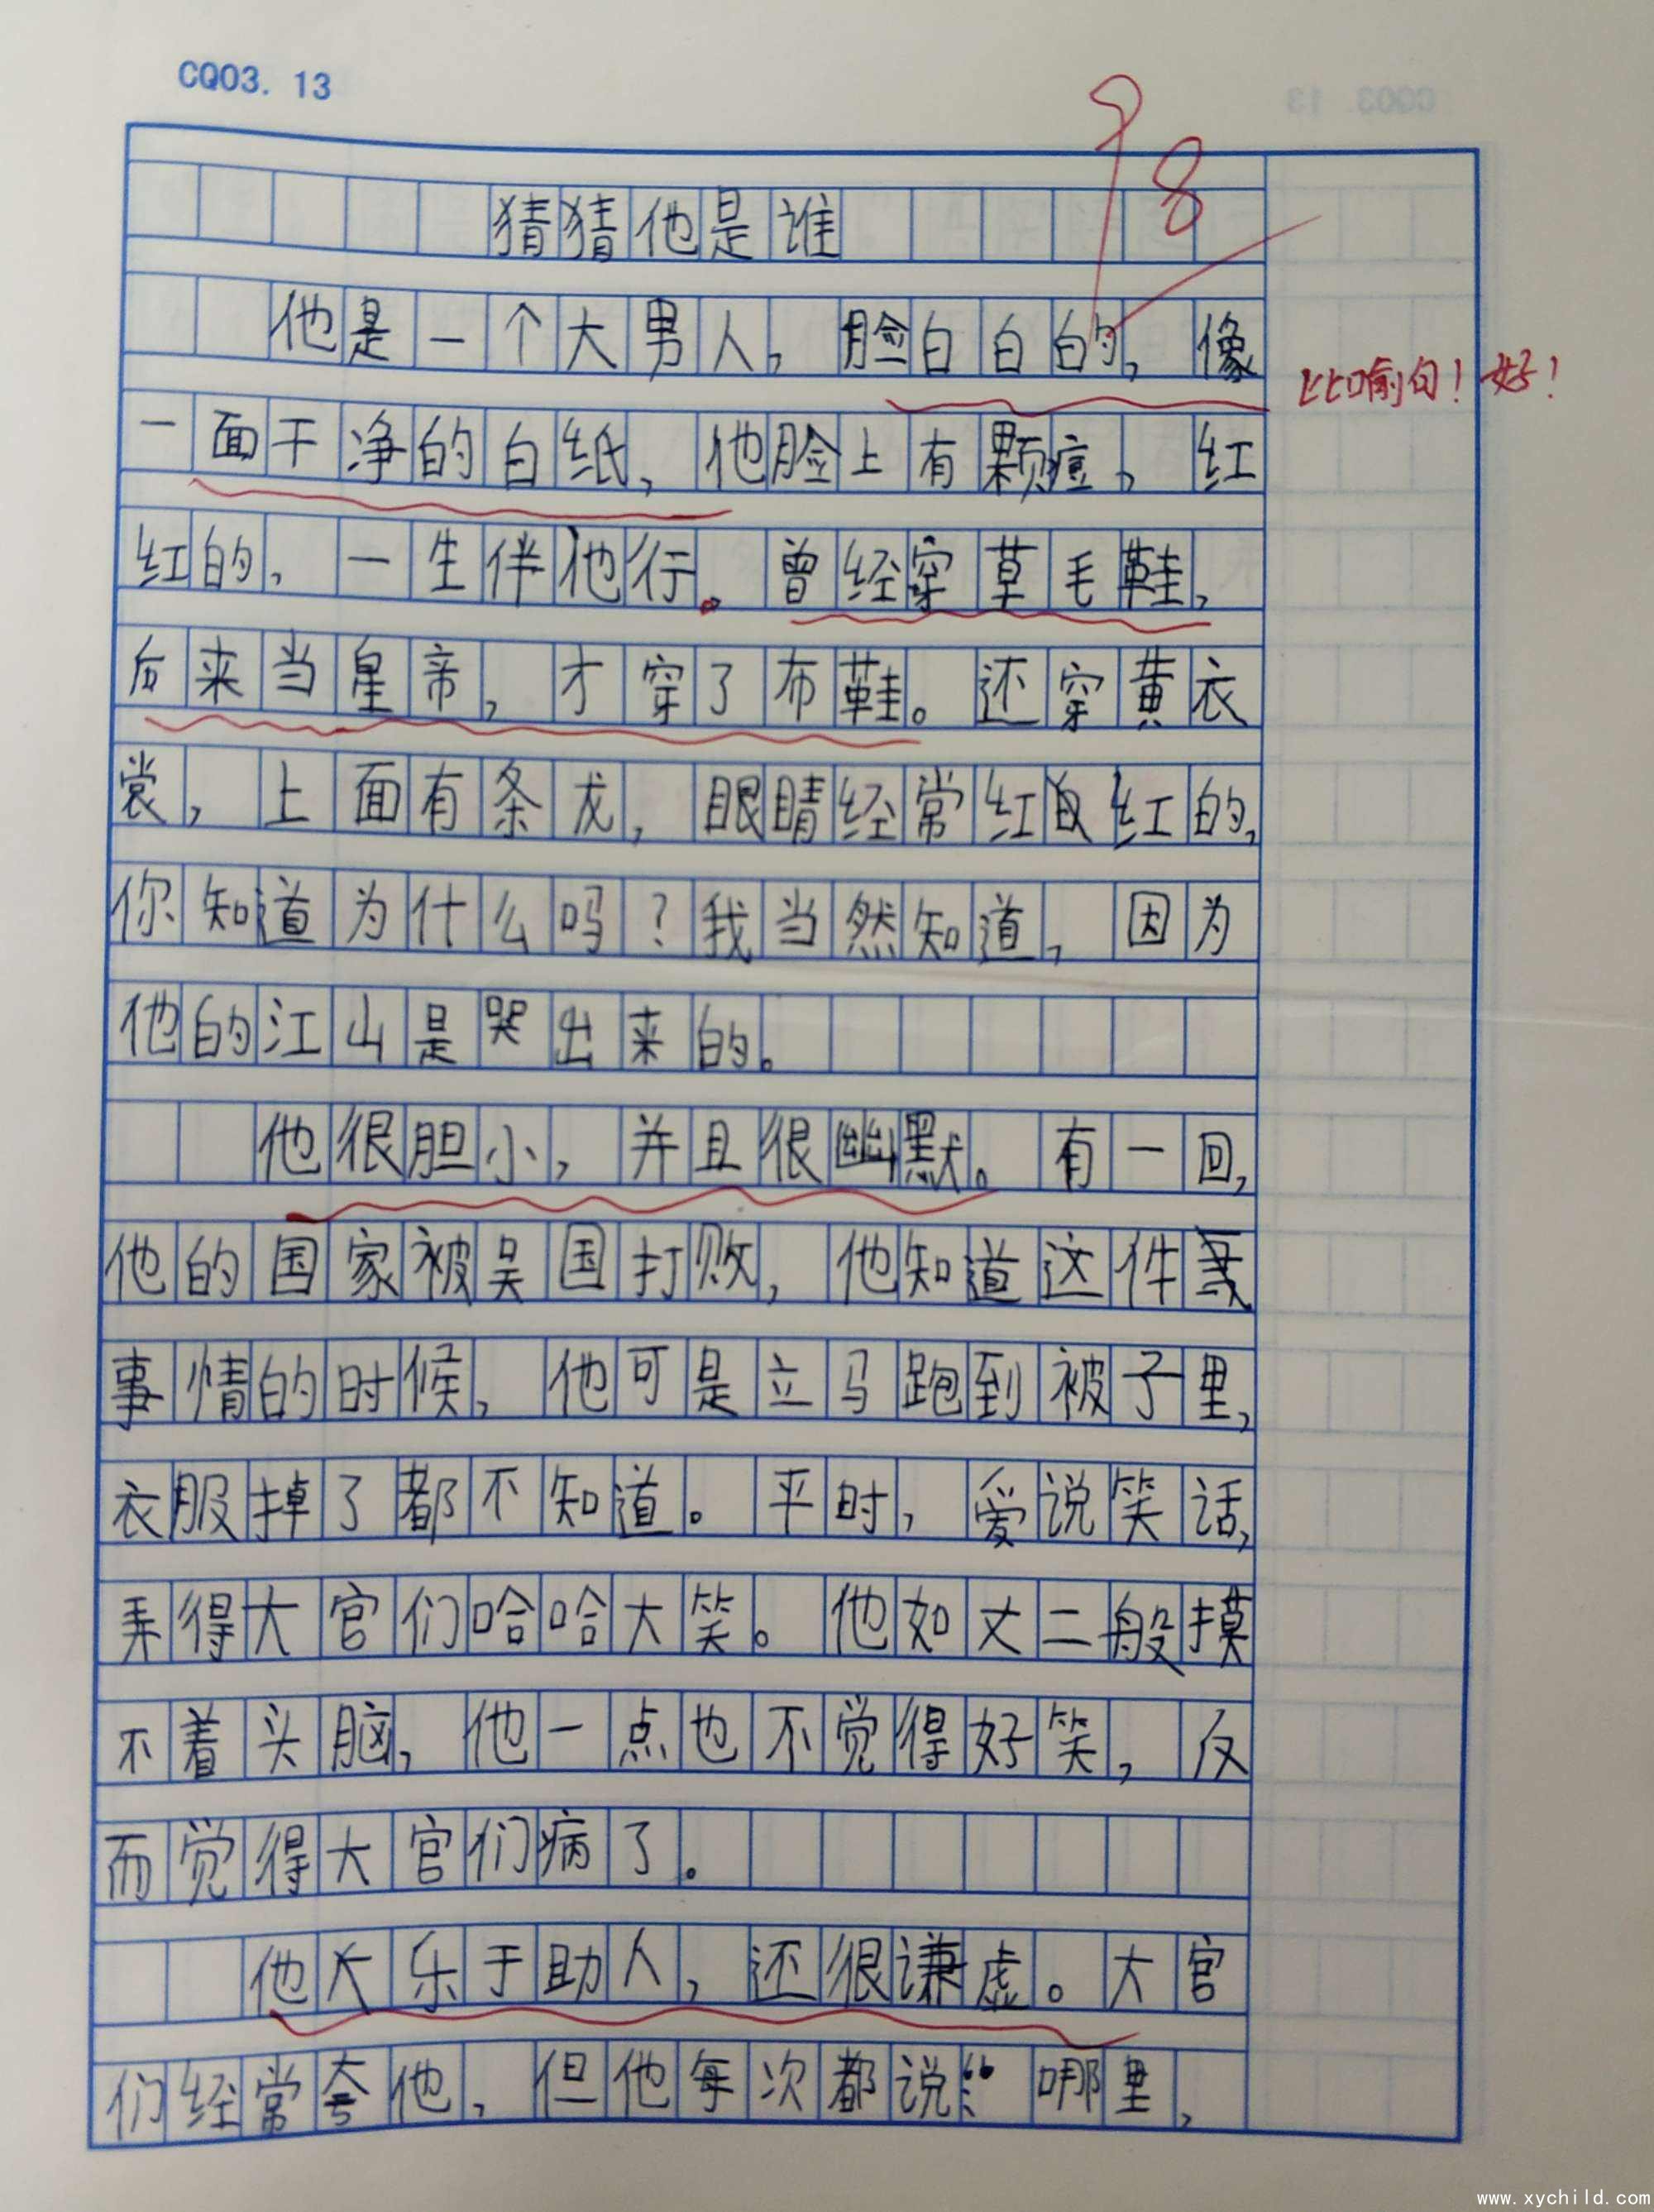 CQ03. 13
98
猜猜他是谁
他是一个大男人，脸白白的，像
比喻句！好！
一面干净的白纸，他脸上有颗痘，红
红的，一生伴他行。曾经穿草毛鞋，
后来当皇帝，才穿了布鞋。还穿黄衣
裳，上面有条龙，眼睛经常红红的，
你知道为什么吗？我当然知道，因为
他的江山是哭出来的。
他很胆小，并且很幽默。有一回，
他的国家被吴国打败，他知道这件
事情的时候，他可是立马跑到被子里，
衣服掉了都不知道。平时，爱说笑话，
弄得大官们哈哈大笑。他如丈二般摸
不着头脑，他一点也不觉得好笑，反
而觉得大官们病了。
他大乐于助人，还很谦虚。大官
们经常夸他，但他每次都说：“哪里，
www.xychild.com